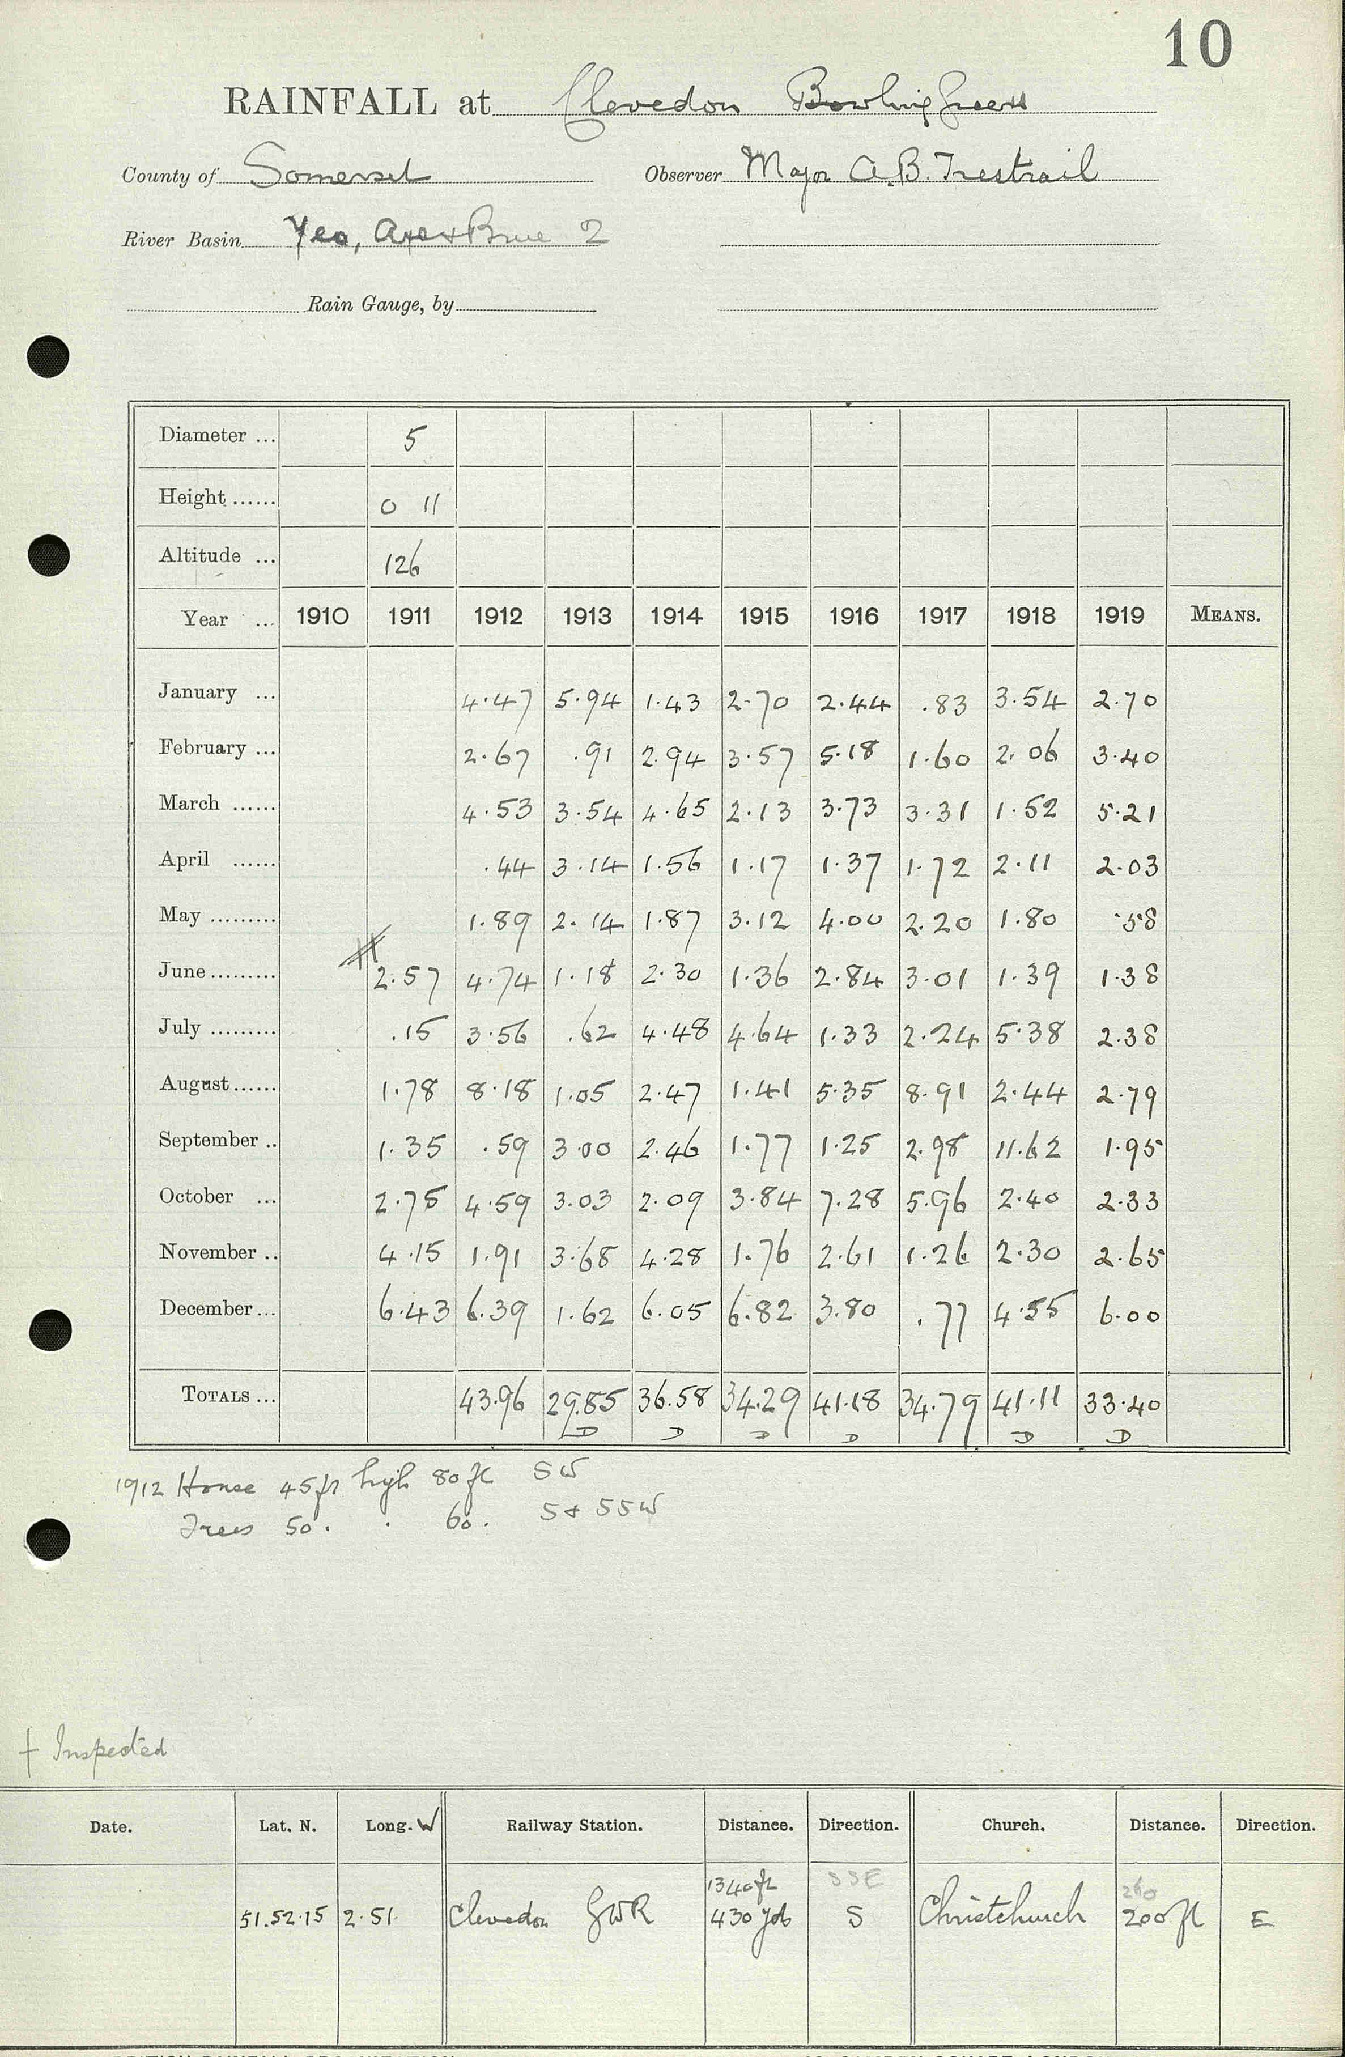 10
RAINFALL at Clevedon Bowling Green
County of Somerset Observer Major A.B. Trestrail
River Basin Yeo, Axe & Brue 2
Rain Gauge, by
Diameter ... 5
Height ...... 0 11
Altitude ... 126
Year ... 1910 1911 1912 1913 1914 1915 1916 1917 1918 1919 MEANS.
January ... 4.47 5.94 1.43 2.70 2.44 .83 3.54 2.70
February ... 2.67 .91 2.94 3.57 5.18 1.60 2.06 3.40
March ...... 4.53 3.54 4.65 2.13 3.73 3.31 1.52 5.21
April ...... .44 3.14 1.56 1.17 1.37 1.72 2.11 2.03
May ......... 1.89 2.14 1.87 3.12 4.00 2.20 1.80 .58
June ......... 2.57 4.74 1.18 2.30 1.36 2.84 3.01 1.39 1.38
July ......... .15 3.56 .62 4.48 4.64 1.33 2.24 5.38 2.38
August ...... 1.78 8.18 1.05 2.47 1.41 5.35 8.91 2.44 2.79
September .. 1.35 .59 3.00 2.46 1.77 1.25 2.98 11.62 1.95
October ... 2.75 4.59 3.03 2.09 3.84 7.28 5.96 2.40 2.33
November .. 4.15 1.91 3.68 4.28 1.76 2.61 1.26 2.30 2.65
December ... 6.43 6.39 1.62 6.05 6.82 3.80 .77 4.55 6.00
TOTALS ... 43.96 29.85 36.58 34.29 41.18 34.79 41.11 33.40
D D D D D D
1912 House 45 ft high 80 ft SW
Trees 50 . . 60 . S & SSW
† Inspected
Date. Lat. N. Long. W Railway Station. Distance. Direction. Church. Distance. Direction.
1340 ft SSE 260
51.52.15 2.51 Clevedon GWR 430 yds S Christchurch 200 ft E